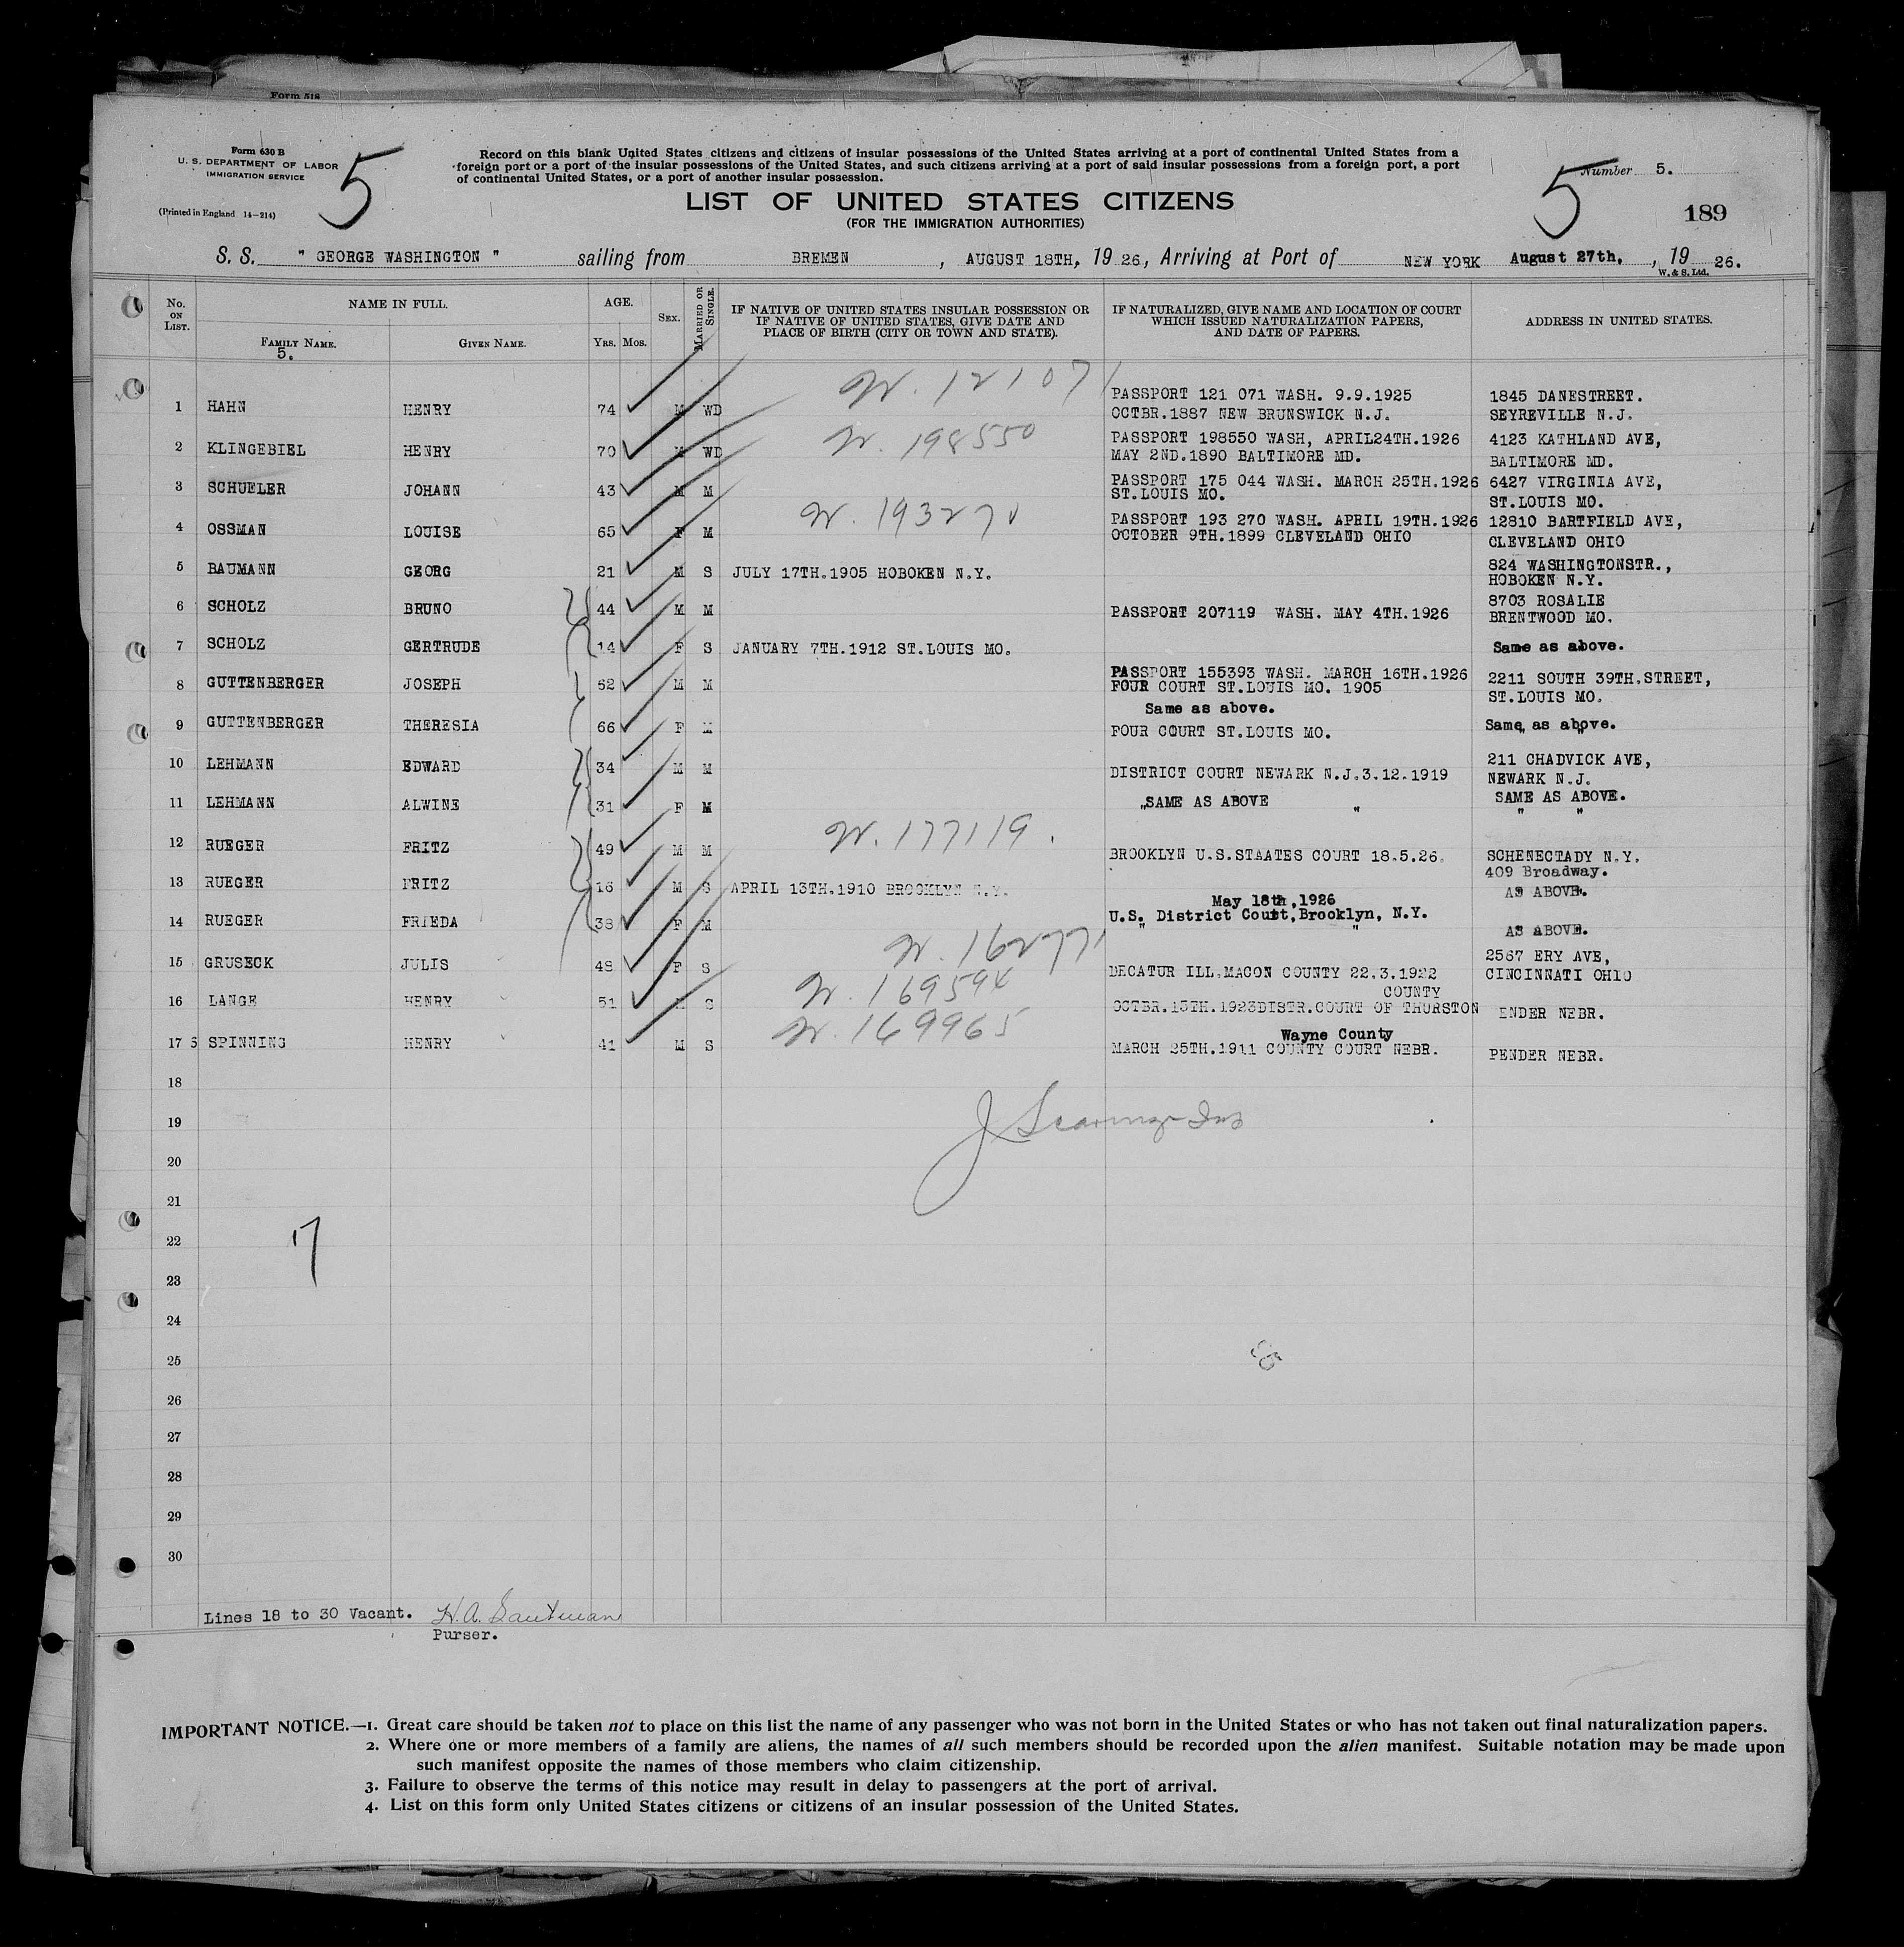 Form 518
Form 630 B
U. S. DEPARTMENT OF LABOR
IMMIGRATION SERVICE
(Printed in England 14-214)
5
Record on this blank United States citizens and citizens of insular possessions of the United States arriving at a port of continental United States from a
foreign port or a port of the insular possessions of the United States, and such citizens arriving at a port of said insular possessions from a foreign port, a port
of continental United States, or a port of another insular possession.
5
Number 5.
LIST OF UNITED STATES CITIZENS
(FOR THE IMMIGRATION AUTHORITIES)
189
S. S. " GEORGE WASHINGTON " sailing from BREMEN , AUGUST 18TH, 19 26, Arriving at Port of NEW YORK August 27th, , 19 26.
W. & S. Ltd.
No. ON LIST.
NAME IN FULL.
FAMILY NAME.
5.
GIVEN NAME.
AGE.
YRS. MOS.
SEX.
MARRIED OR SINGLE.
IF NATIVE OF UNITED STATES INSULAR POSSESSION OR
IF NATIVE OF UNITED STATES, GIVE DATE AND
PLACE OF BIRTH (CITY OR TOWN AND STATE).
IF NATURALIZED, GIVE NAME AND LOCATION OF COURT
WHICH ISSUED NATURALIZATION PAPERS,
AND DATE OF PAPERS.
ADDRESS IN UNITED STATES.
W. 121071
PASSPORT 121 071 WASH. 9.9.1925 1845 DANESTREET.
1 HAHN HENRY 74 M WD OCTBR.1887 NEW BRUNSWICK N.J. SEYREVILLE N.J.
W. 198550
PASSPORT 198550 WASH, APRIL24TH.1926 4123 KATHLAND AVE,
2 KLINGEBIEL HENRY 70 M WD MAY 2ND.1890 BALTIMORE MD. BALTIMORE MD.
PASSPORT 175 044 WASH. MARCH 25TH.1926 6427 VIRGINIA AVE,
3 SCHUELER JOHANN 43 M M ST.LOUIS MO. ST.LOUIS MO.
W. 193270
PASSPORT 193 270 WASH. APRIL 19TH.1926 12810 BARTFIELD AVE,
4 OSSMAN LOUISE 65 F M OCTOBER 9TH.1899 CLEVELAND OHIO CLEVELAND OHIO
824 WASHINGTONSTR.,
5 BAUMANN GEORG 21 M S JULY 17TH.1905 HOBOKEN N.Y. HOBOKEN N.Y.
8703 ROSALIE
6 SCHOLZ BRUNO 44 M M PASSPORT 207119 WASH. MAY 4TH.1926 BRENTWOOD MO.
7 SCHOLZ GERTRUDE 14 F S JANUARY 7TH.1912 ST.LOUIS MO. Same as above.
PASSPORT 155393 WASH. MARCH 16TH.1926 2211 SOUTH 39TH.STREET,
8 GUTTENBERGER JOSEPH 52 M M FOUR COURT ST.LOUIS MO. 1905 ST.LOUIS MO.
Same as above.
9 GUTTENBERGER THERESIA 66 F M FOUR COURT ST.LOUIS MO. Same as above.
211 CHADVICK AVE,
10 LEHMANN EDWARD 34 M M DISTRICT COURT NEWARK N.J.3.12.1919 NEWARK N.J.
11 LEHMANN ALWINE 31 F M "SAME AS ABOVE " SAME AS ABOVE.
" "
W. 177119.
12 RUEGER FRITZ 49 M M BROOKLYN U.S.STAATES COURT 18.5.26. SCHENECTADY N.Y.
409 Broadway.
13 RUEGER FRITZ 16 M S APRIL 13TH.1910 BROOKLYN N.Y. AS ABOVE.
May 18th,1926
14 RUEGER FRIEDA 38 F M U.S. District Court, Brooklyn, N.Y. AS ABOVE.
W. 162771
2567 ERY AVE,
15 GRUSECK JULIS 48 F S DECATUR ILL.MACON COUNTY 22.3.1922 CINCINNATI OHIO
W. 169594
COUNTY
16 LANGE HENRY 51 S OCTBR.15TH.1923DISTR.COURT OF THURSTON ENDER NEBR.
W. 169965
Wayne County
17 5 SPINNING HENRY 41 M S MARCH 25TH.1911 COUNTY COURT NEBR. PENDER NEBR.
18
19
20
21
22
17
23
24
25
26
27
28
29
30
Lines 18 to 30 Vacant.
Purser.
IMPORTANT NOTICE.—1. Great care should be taken not to place on this list the name of any passenger who was not born in the United States or who has not taken out final naturalization papers.
2. Where one or more members of a family are aliens, the names of all such members should be recorded upon the alien manifest. Suitable notation may be made upon
such manifest opposite the names of those members who claim citizenship.
3. Failure to observe the terms of this notice may result in delay to passengers at the port of arrival.
4. List on this form only United States citizens or citizens of an insular possession of the United States.